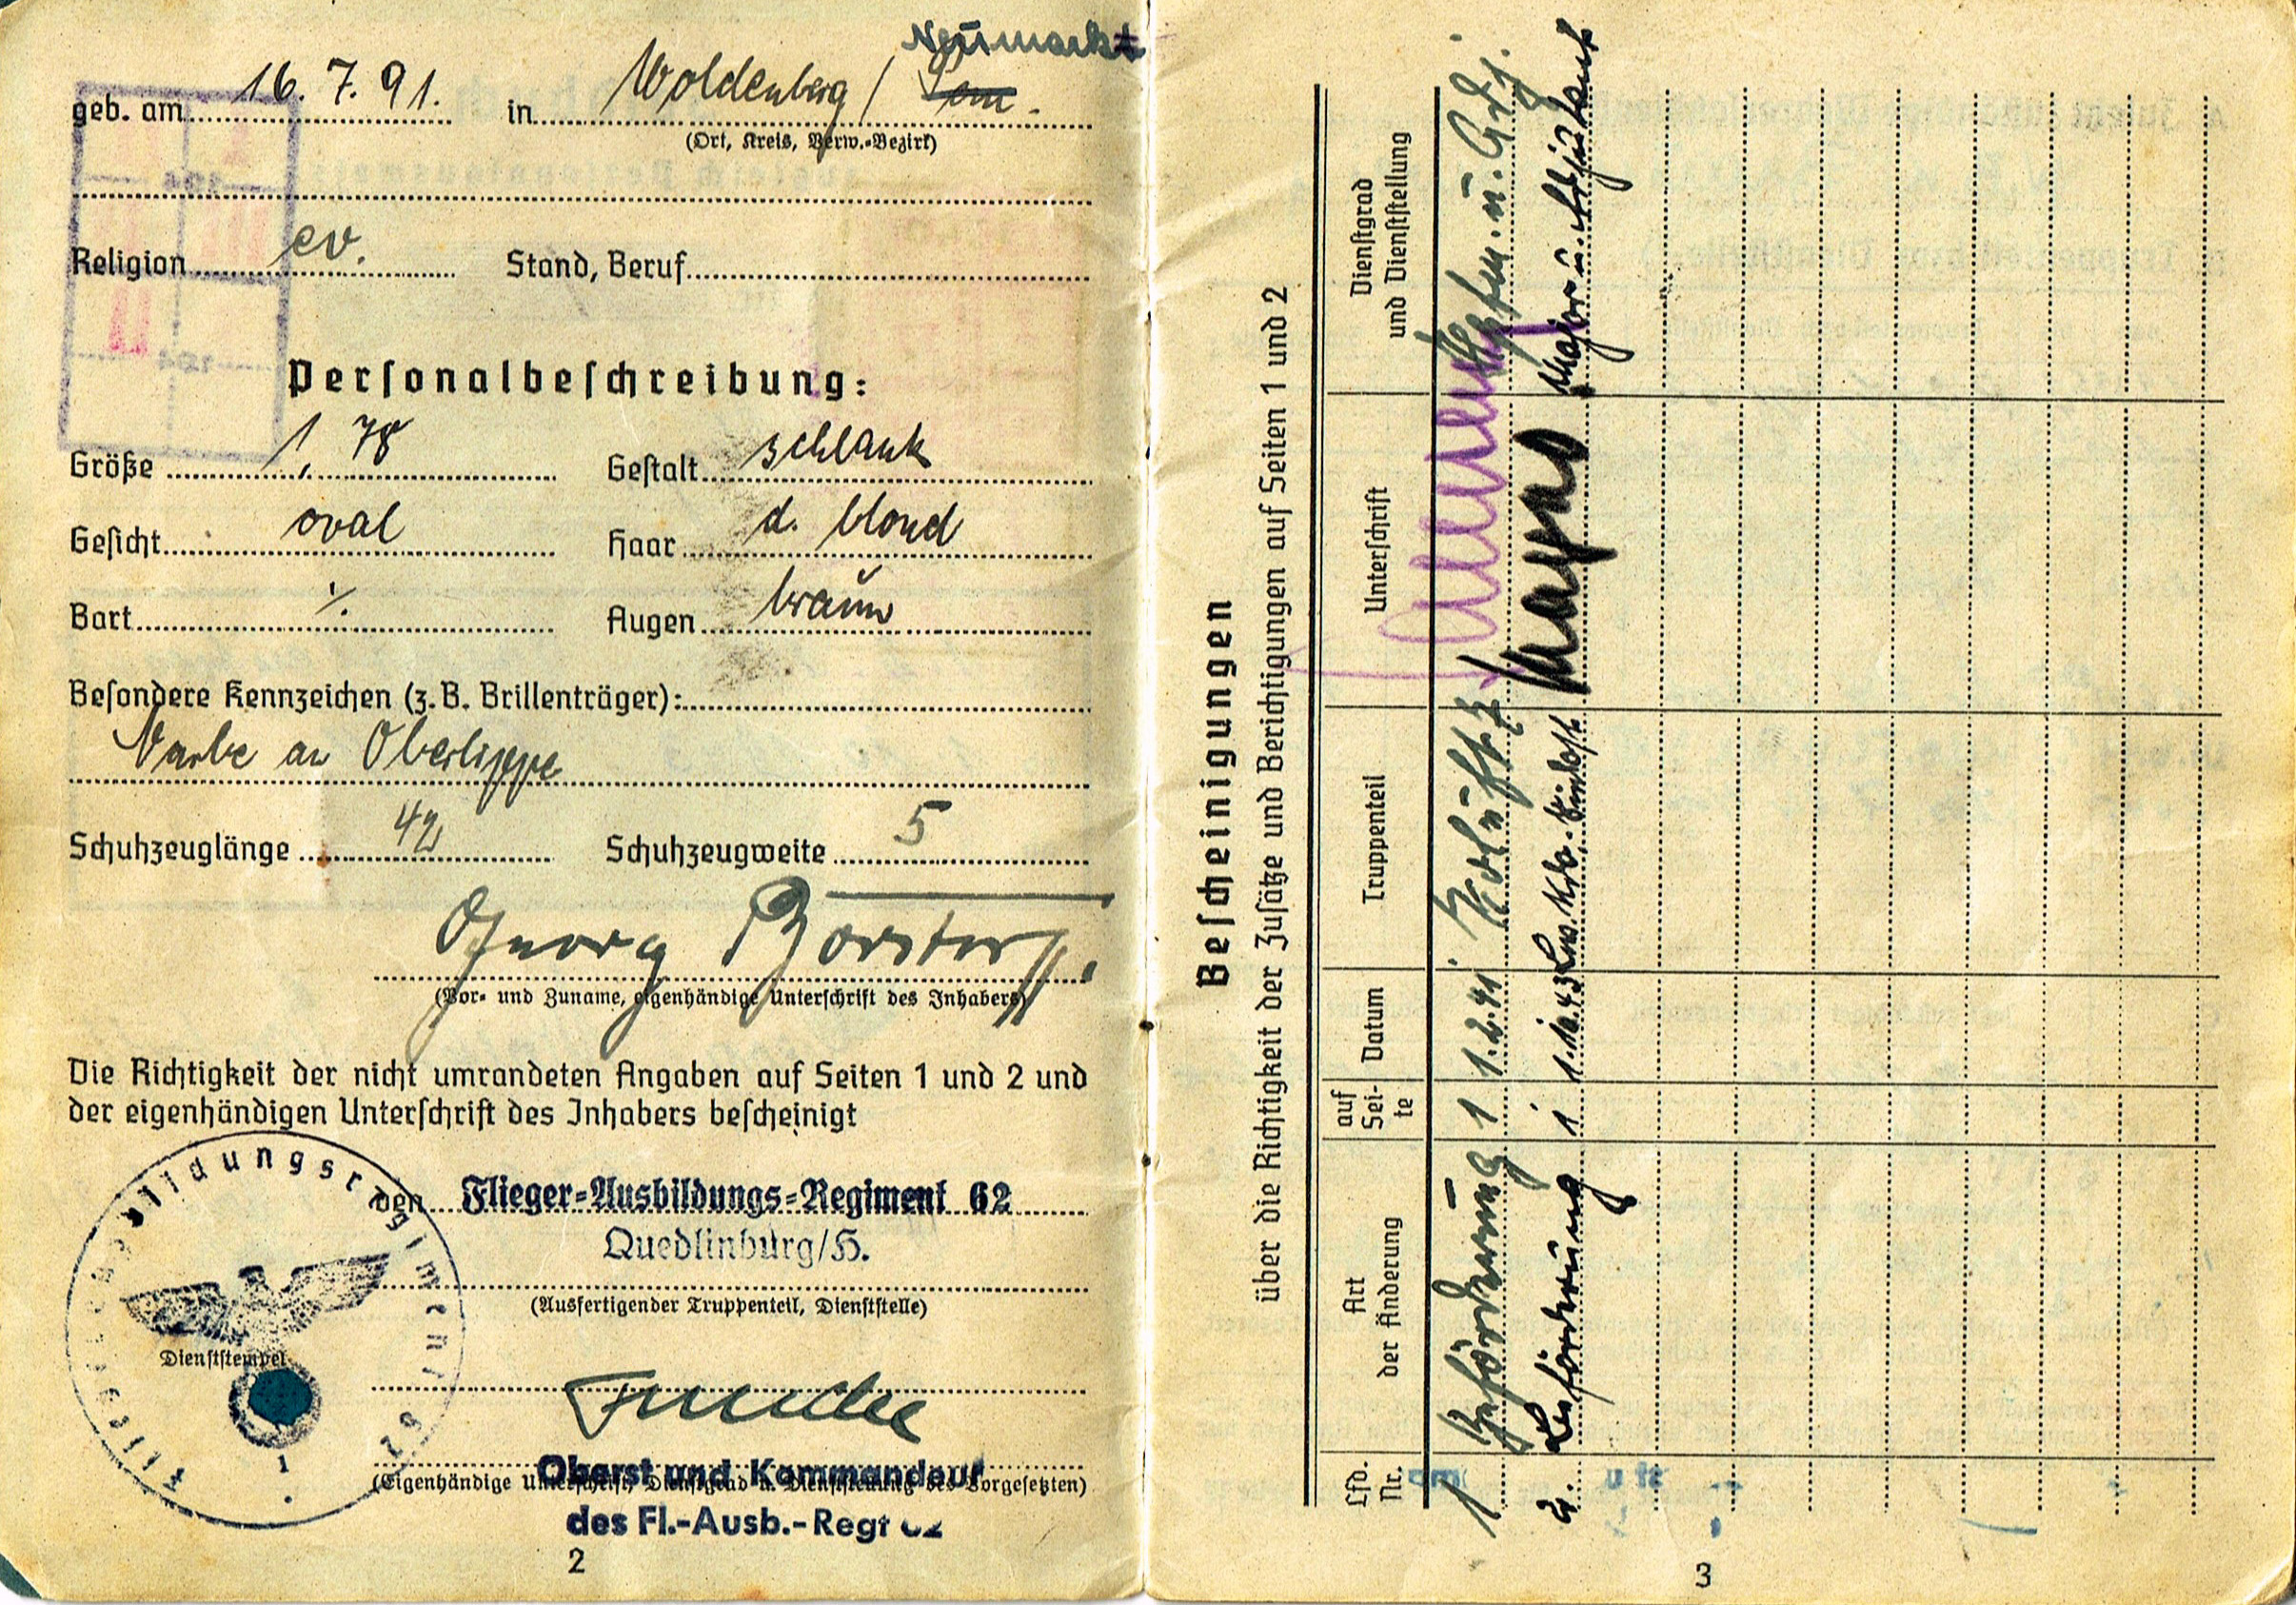 Neumark
geb. am 16. 7. 91. in Woldenberg / Pom.
(Ort, Kreis, Verw.-Bezirk)
Religion ev. Stand, Beruf
Personalbeschreibung:
Größe 1,78 Gestalt schlank
Gesicht oval Haar d. blond
Bart ./. Augen braun
Besondere Kennzeichen (z. B. Brillenträger):
Narbe an Oberlippe
Schuhzeuglänge 42 Schuhzeugweite 5
Georg Borstorff.
(Vor- und Zuname, eigenhändige Unterschrift des Inhabers)
Die Richtigkeit der nicht umrandeten Angaben auf Seiten 1 und 2 und
der eigenhändigen Unterschrift des Inhabers bescheinigt
den Flieger-Ausbildungs-Regiment 62
Quedlinburg/H.
(Ausfertigender Truppenteil, Dienststelle)
Fliegerausbildungsregiment 62
Dienststempel
1
(Eigenhändige Unterschrift, Dienstgrad u. Dienststellung des Vorgesetzten)
Oberst und Kommandeur
des Fl.-Ausb.-Regt 62
2
Bescheinigungen
über die Richtigkeit der Zusätze und Berichtigungen auf Seiten 1 und 2
Lfd. Nr. Art der Änderung auf Seite Datum Truppenteil Unterschrift Dienstgrad und Dienststellung
1 Beförderung 1 1.2.41 Hptm. u.
2. Beförderung 1 1.10.43 Lw. Major u. Adjutant
3